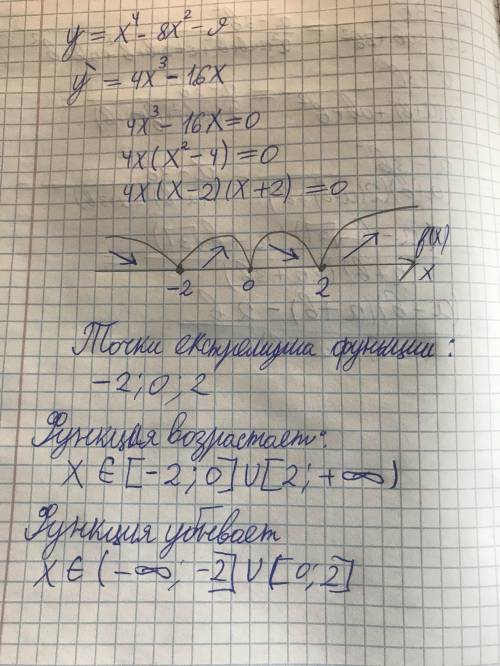 y = x⁴ - 8x² - 9
y' = 4x³ - 16x
4x³ - 16x = 0
4x(x² - 4) = 0
4x(x-2)(x+2) = 0
f(x)
-2 0 2 x
Точки екстремума функции:
-2; 0; 2
Функция возрастает:
x ∈ [-2; 0] ∪ [2; +∞)
Функция убывает
x ∈ (-∞; -2] ∪ [0; 2]